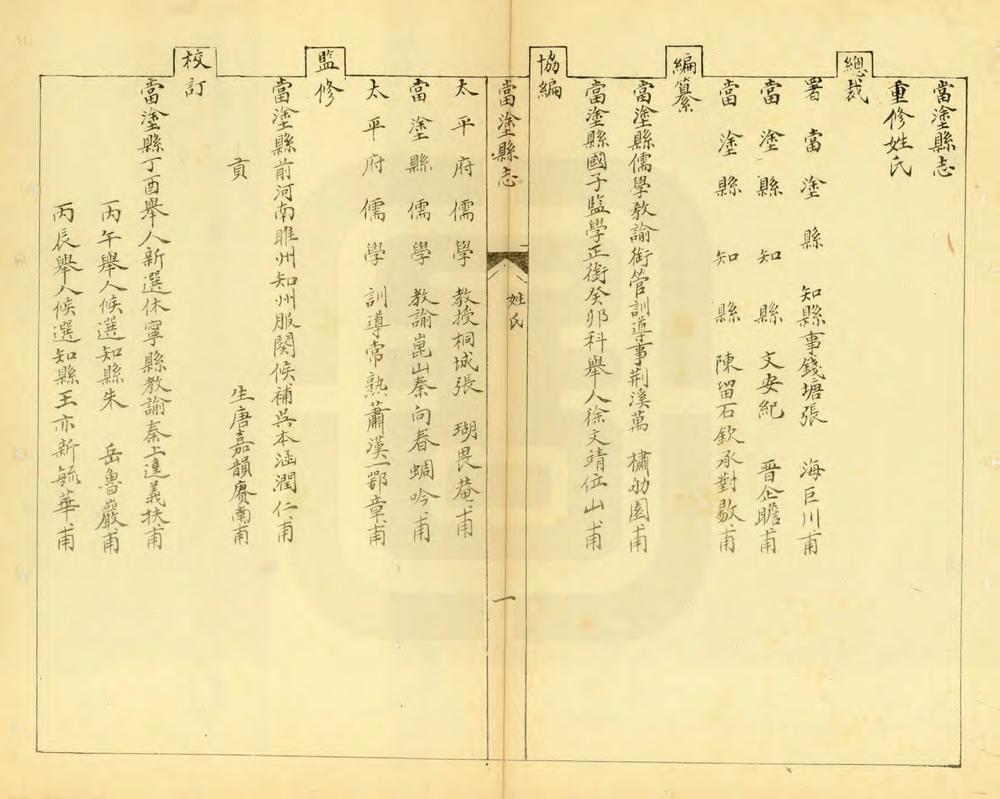 當塗縣志
重修姓氏
總裁
署當塗縣知縣事錢塘張海巨川甫
當塗縣知縣文安紀晋企瞻甫
當塗縣知縣陳留石欽承對敭甫
編纂
當塗縣儒學教諭銜管訓導事荆溪萬橚劬園甫
當塗縣國子監學正銜癸卯科舉人徐文靖位山甫
協編
當塗縣志
姓氏
一
太平府儒學教授桐城張瑚畏菴甫
當塗縣儒學教諭崑山秦向春蜩吟甫
太平府儒學訓導常熟蕭漢一鄂章甫
監修
當塗縣前河南睢州知州服闋候補吳本涵潤仁甫
貢生唐嘉韻賡南甫
校訂
當塗縣丁酉舉人新選休寧縣教諭秦上達義扶甫
丙午舉人候選知縣朱岳魯巖甫
丙辰舉人候選知縣王亦新毓華甫